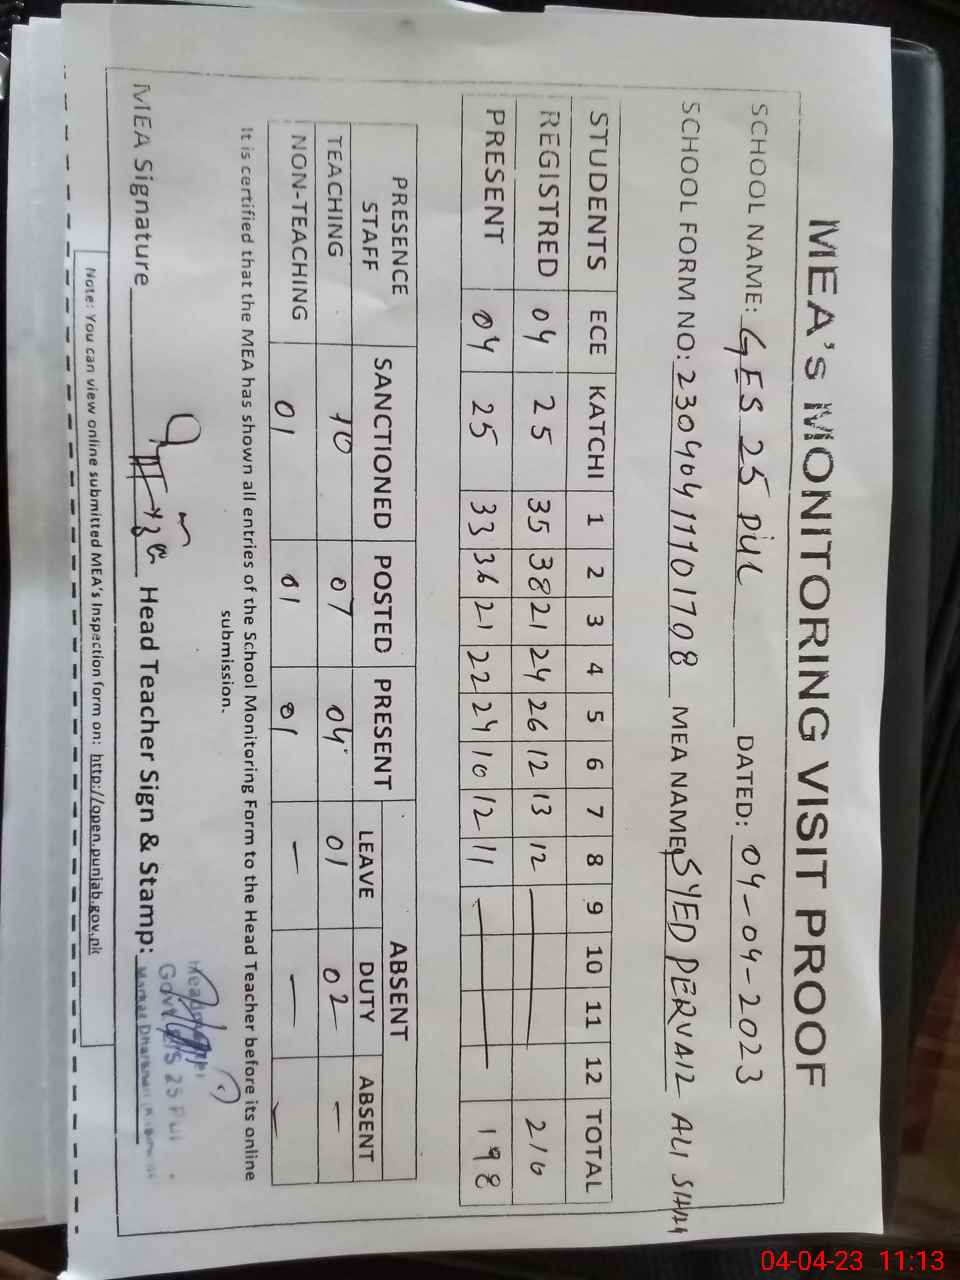 MEA's MONITORING VISIT PROOF
SCHOOL NAME: GES 25 Pul DATED: 04-04-2023
SCHOOL FORM NO: 23040411101708 MEA NAME: SYED PERVAIZ ALI SHAH
STUDENTS ECE KATCHI 1 2 3 4 5 6 7 8 9 10 11 12 TOTAL
REGISTRED 04 25 35 38 21 24 26 12 13 12 — 210
PRESENT 04 25 33 36 21 22 24 10 12 11 — 198
PRESENCE STAFF SANCTIONED POSTED PRESENT ABSENT
LEAVE DUTY ABSENT
TEACHING 10 07 04 01 02 —
NON-TEACHING 01 01 01 — — —
It is certified that the MEA has shown all entries of the School Monitoring Form to the Head Teacher before its online
submission.
MEA Signature Head Teacher Sign & Stamp:
Govt E/S 25 Pul
Note: You can view online submitted MEA's Inspection form on: http://open.punjab.gov.pk
04-04-23 11:13